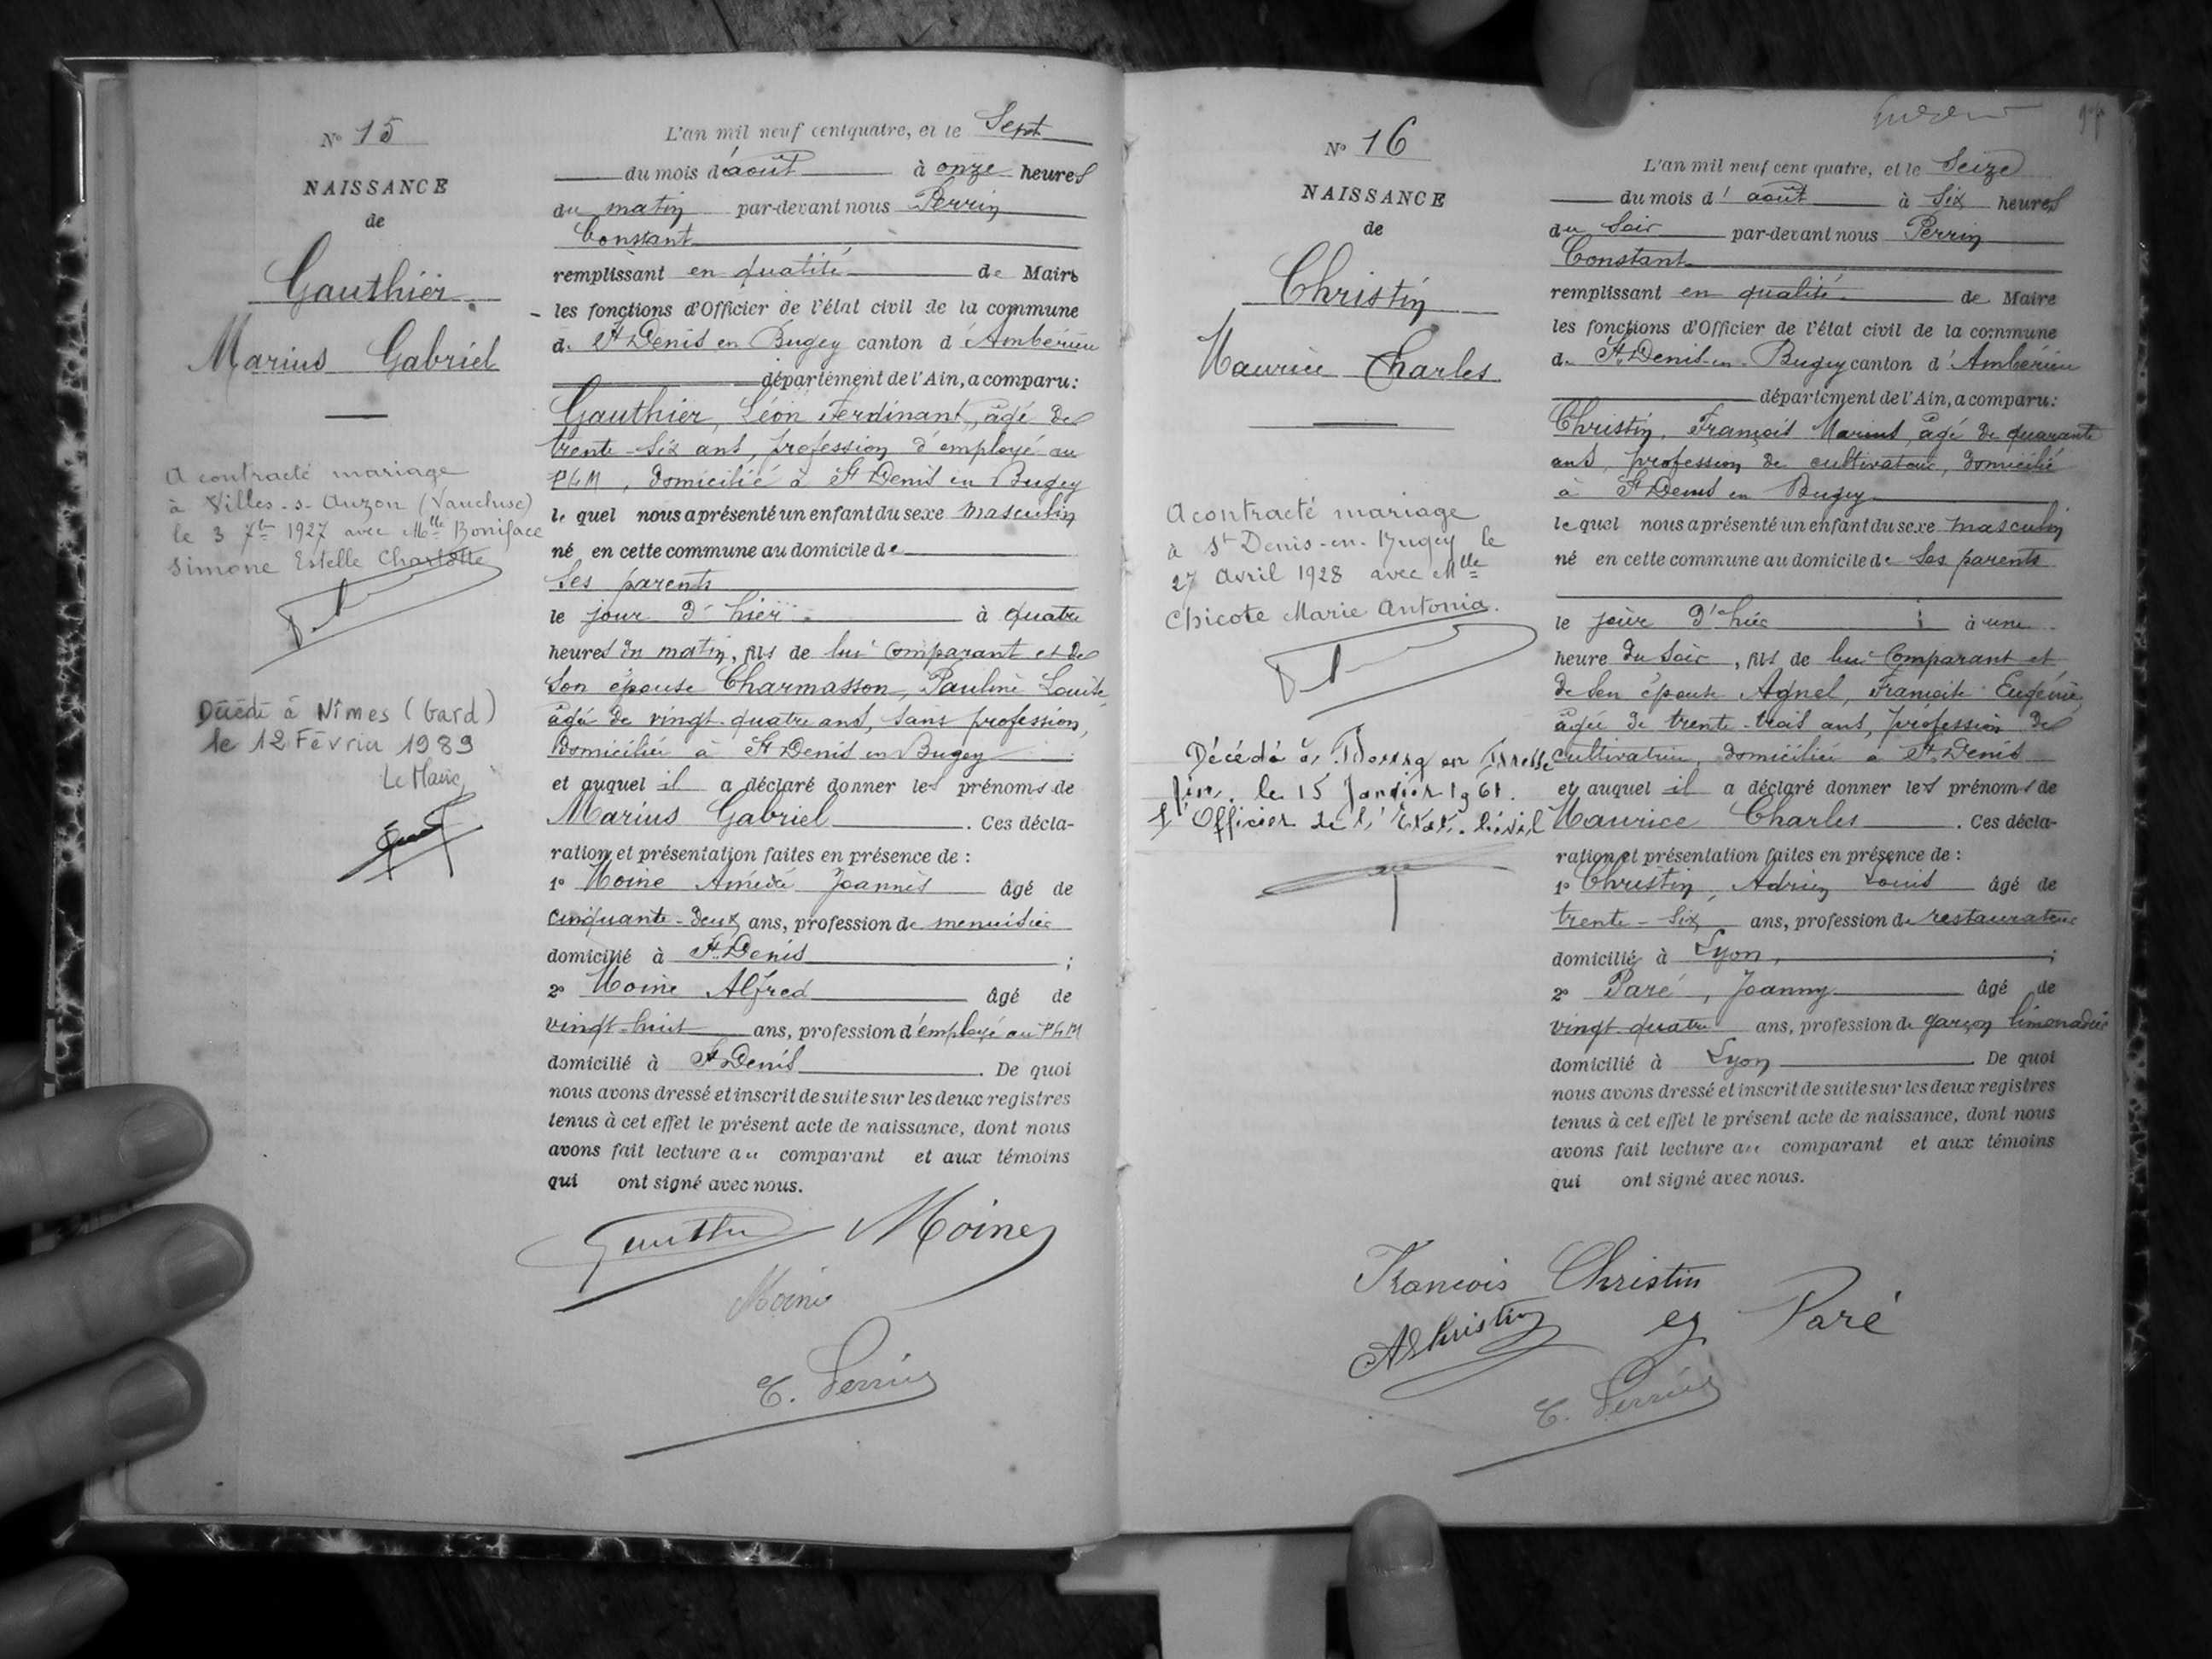 N° 15
NAISSANCE
de
Gauthier
Marius Gabriel
A contracté mariage
à Villes-s-Auzon (Vaucluse)
le 3 7bre 1927 avec Mlle Boniface
Simone Estelle Charlotte
Décédé à Nîmes (Gard)
le 12 Février 1989
Le Maire,
L'an mil neuf cent quatre, et le Sept
du mois d'août à onze heures
du matin par-devant nous Perrin
Constant
remplissant en qualité de Maire
les fonctions d'Officier de l'état civil de la commune
de St Denis en Bugey canton d'Ambérieu
département de l'Ain, a comparu:
Gauthier, Léon Ferdinant, âgé de
trente-six ans, profession d'employé au
PLM, domicilié à St Denis en Bugey
le quel nous a présenté un enfant du sexe masculin
né en cette commune au domicile de
ses parents
le jour d'hier à quatre
heures du matin, fils de lui comparant et de
son épouse Charmasson, Pauline Louise,
âgée de vingt-quatre ans, sans profession,
domiciliée à St Denis en Bugey
et auquel il a déclaré donner les prénoms de
Marius Gabriel. Ces décla-
ration et présentation faites en présence de :
1° Moine Amédé Joannès âgé de
cinquante-deux ans, profession de menuisier
domicilié à St Denis ;
2° Moine Alfred âgé de
vingt-huit ans, profession d'employé au PLM
domicilié à St Denis. De quoi
nous avons dressé et inscrit de suite sur les deux registres
tenus à cet effet le présent acte de naissance, dont nous
avons fait lecture au comparant et aux témoins
qui ont signé avec nous.
Gauthier Moine
Moine
C. Perrin
N° 16
NAISSANCE
de
Christin
Maurice Charles
A contracté mariage
à St Denis-en-Bugey le
27 Avril 1928 avec Mlle
Chicote Marie Antonia.
Décédé à Bourg en Bresse
Ain, le 15 Janvier 1961.
L'Officier de l'Etat-Civil
L'an mil neuf cent quatre, et le Seize
du mois d'août à six heures
du soir par-devant nous Perrin
Constant
remplissant en qualité de Maire
les fonctions d'Officier de l'état civil de la commune
de St Denis-en-Bugey canton d'Ambérieu
département de l'Ain, a comparu:
Christin, François Marius, âgé de quarante
ans, profession de cultivateur, domicilié
à St Denis en Bugey
le quel nous a présenté un enfant du sexe masculin
né en cette commune au domicile de ses parents
le jour d'hier à une
heure du soir, fils de lui comparant et
de son épouse Agnel, Françoise Eugénie,
âgée de trente-trois ans, profession de
cultivatrice, domiciliée à St Denis
et auquel il a déclaré donner les prénoms de
Maurice Charles. Ces décla-
ration et présentation faites en présence de :
1° Christin, Adrien Louis âgé de
trente-six ans, profession de restaurateur
domicilié à Lyon, ;
2° Paré, Joanny âgé de
vingt-quatre ans, profession de garçon limonadier
domicilié à Lyon. De quoi
nous avons dressé et inscrit de suite sur les deux registres
tenus à cet effet le présent acte de naissance, dont nous
avons fait lecture au comparant et aux témoins
qui ont signé avec nous.
Francois Christin
AChristin Paré
C. Perrin